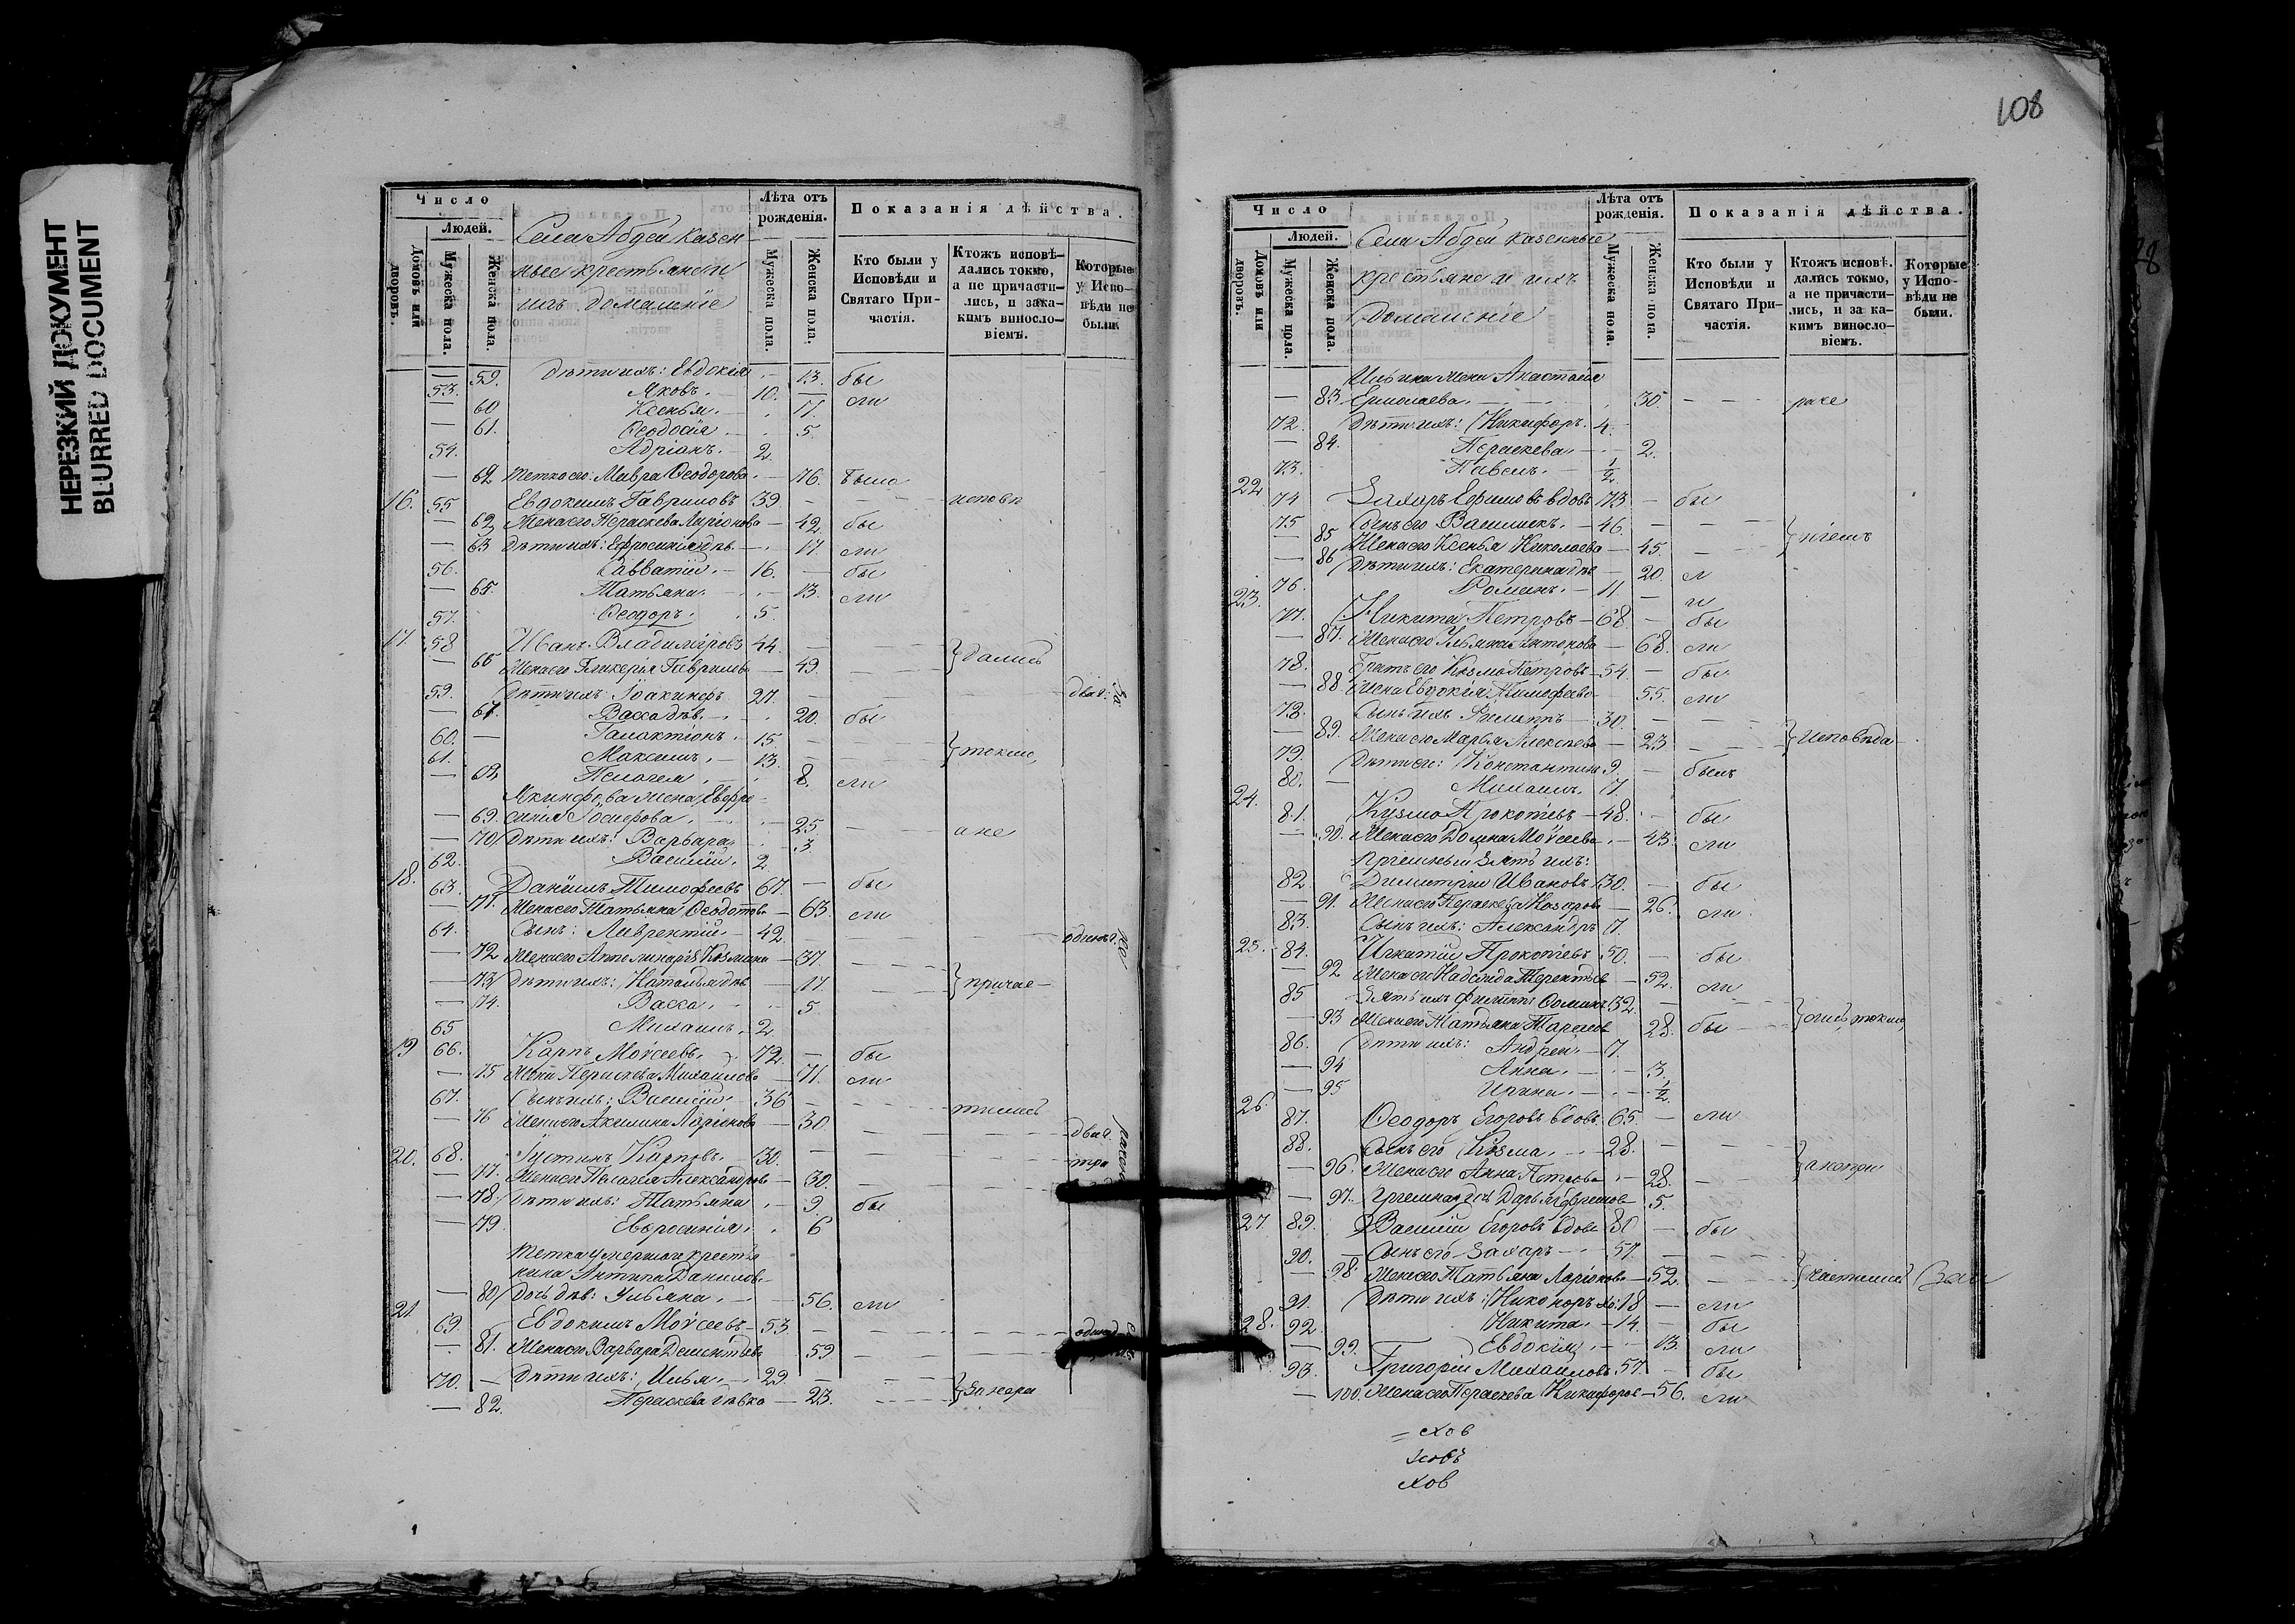 НЕРЕЗКИЙ ДОКУМЕНТ
BLURRED DOCUMENT
Число
Людей.
Домовъ или дворовъ.
Мужеска пола.
Женска пола.
Села Абдей казен-
ные крестьяне и
ихъ домашніе
Лѣта отъ рожденія.
Мужеска пола.
Женска пола.
Показанія дѣйства.
Кто были у Исповѣди и Святаго Причастія.
Ктожъ исповѣ-
дались токмо,
а не причасти-
лись, и за ка-
кимъ виносло-
віемъ.
Которые
у Испо-
вѣди не
были.
59. Дѣти ихъ: Евдокія 13. бы
53. Яковъ. 10. ли
60 Ксенья. 11.
61. Ѳеодосія 5.
54. Адріанъ. 2.
62. Тетка его: Мавра Ѳеодорова. 76. была
16. 55 Евдокимъ Гавриловъ 39 исповѣ
62 Жена его Пераскева Ларіонова 42. бы
63 Дѣти ихъ: Ефросинія дѣв. 17. ли
56. Савватій. 16. бы
65. Татьяна. 13. ли
57. Ѳеодоръ. 5.
17 58 Иванъ Владиміровъ 44.
66 Жена его Гликерія Гаврилова 49. дались
59. Дѣти ихъ: Іоакинѳъ 27. два г.
67. Васса дѣв. 20. бы
60. Галактіонъ. 15.
61. Максимъ. 13. токмо,
68 Пелагея 8. ли
Якинѳова жена Евфро-
69. синія Іосифова. 25. а не
70 Дѣти ихъ: Варвара 3.
62. Василій. 2
18. 63. Даніилъ Тимофеевъ 67. бы
71. Жена его Татьяна Ѳеодотова 63. ли
64. Сынъ: Лаврентій 42. одинъ г.
72 Жена его Апполинарія Козмина 37.
73 Дѣти ихъ: Наталья дѣв 17. причас-
74. Васса. 5
65 Михаилъ. 2
19 66. Карпъ Моѵсеевъ. 72. бы
75 Жена Пераскева Михаилова 71. ли
67. Сынъ ихъ: Василій 36
76 Жена его Акилина Ларіонова 30 тились
два г.
20. 68. Іустинъ Карповъ. 30. три
77. Жена его Пелагея Александрова 30.
78. Дѣти ихъ: Татьяна 9. бы
79. Евфросинія. 6
Тетка умершаго крестья
нина Антипа Данилова
80 Дочь дѣв: Ульяна. 56. ли
21 69. Евдокимъ Моѵсеевъ 53.
81. Жена его Варвара Дементьева 59
70. Дѣти ихъ: Илья. 29.
82. Пераскева дѣвка 23. за нера
108
Число
Людей.
Домовъ или дворовъ.
Мужеска пола.
Женска пола.
Села Абдей казенные
крестьяне и ихъ
домашніе
Лѣта отъ рожденія.
Мужеска пола.
Женска пола.
Показанія дѣйства.
Кто были у Исповѣди и Святаго Причастія.
Ктожъ исповѣ-
дались токмо,
а не причасти-
лись, и за ка-
кимъ виносло-
віемъ.
Которые
у Испо-
вѣди не
были.
Ильина жена Анастасія
83. Ермолаева. 30.
72. Дѣти ихъ: Никифоръ. 4.
84. Пераскева. 2.
73. Павелъ. ½
22 74 Захаръ Ефимовъ вдовъ 73. бы
75 Сынъ его Василискъ. 46.
85 Жена его Ксенья Николаева 45. ніемъ
86 Дѣти ихъ: Екатерина дѣв 20. л
76. Романъ. 11 и
23. 77. Никита Петровъ 68. бы
87. Жена его Ульяна Антонова 68. ли
78. Братъ его Козма Петровъ 54. бы
88 Жена Евдокія Тимофеева 55. ли
78. Сынъ ихъ Филиппъ 30.
89. Жена его Марья Алексѣева 23 Исповѣда-
79. Дѣти ихъ: Константинъ 9. былъ
80. Михаилъ. 7.
24. 81. Кузма Прокопіевъ 48. бы
90. Жена его Домна Моѵсеева. 43. ли
Пріемный зять ихъ:
82. Димитрій Ивановъ 30. бы
91. Жена его Пераскева Назарова 26. ли
83. Сынъ ихъ: Александръ 7.
25. 84. Игнатій Прокопіевъ 50. бы
92 Жена его Надежда Терентьев 52. ли
85 Зять ихъ Филиппъ 32.
93 Жена его Татьяна 28. бы лись, токмо,
86. Дѣти ихъ: Андрей 7.
94 Анна. 3.
95 Ирина. ½
26. 87. Ѳеодоръ Егоровъ вдовъ. 65. ли
88. Сынъ его Козма. 28.
96. Жена его Анна Петрова 28. а не при
97. Пріемная дочь Дарья 5.
27. 89. Василій Егоровъ вдов 80 бы
90. Сынъ его Захаръ 57.
98. Жена его Татьяна Ларіонова 52. частились за
91. Дѣти ихъ: Никоноръ хо: 18 ли
28. 92. Никита. 14. бы
99. Евдокія 13. ли
93. Григорій Михаиловъ 57. бы
100. Жена его Пераскева Никифоров 56. ли